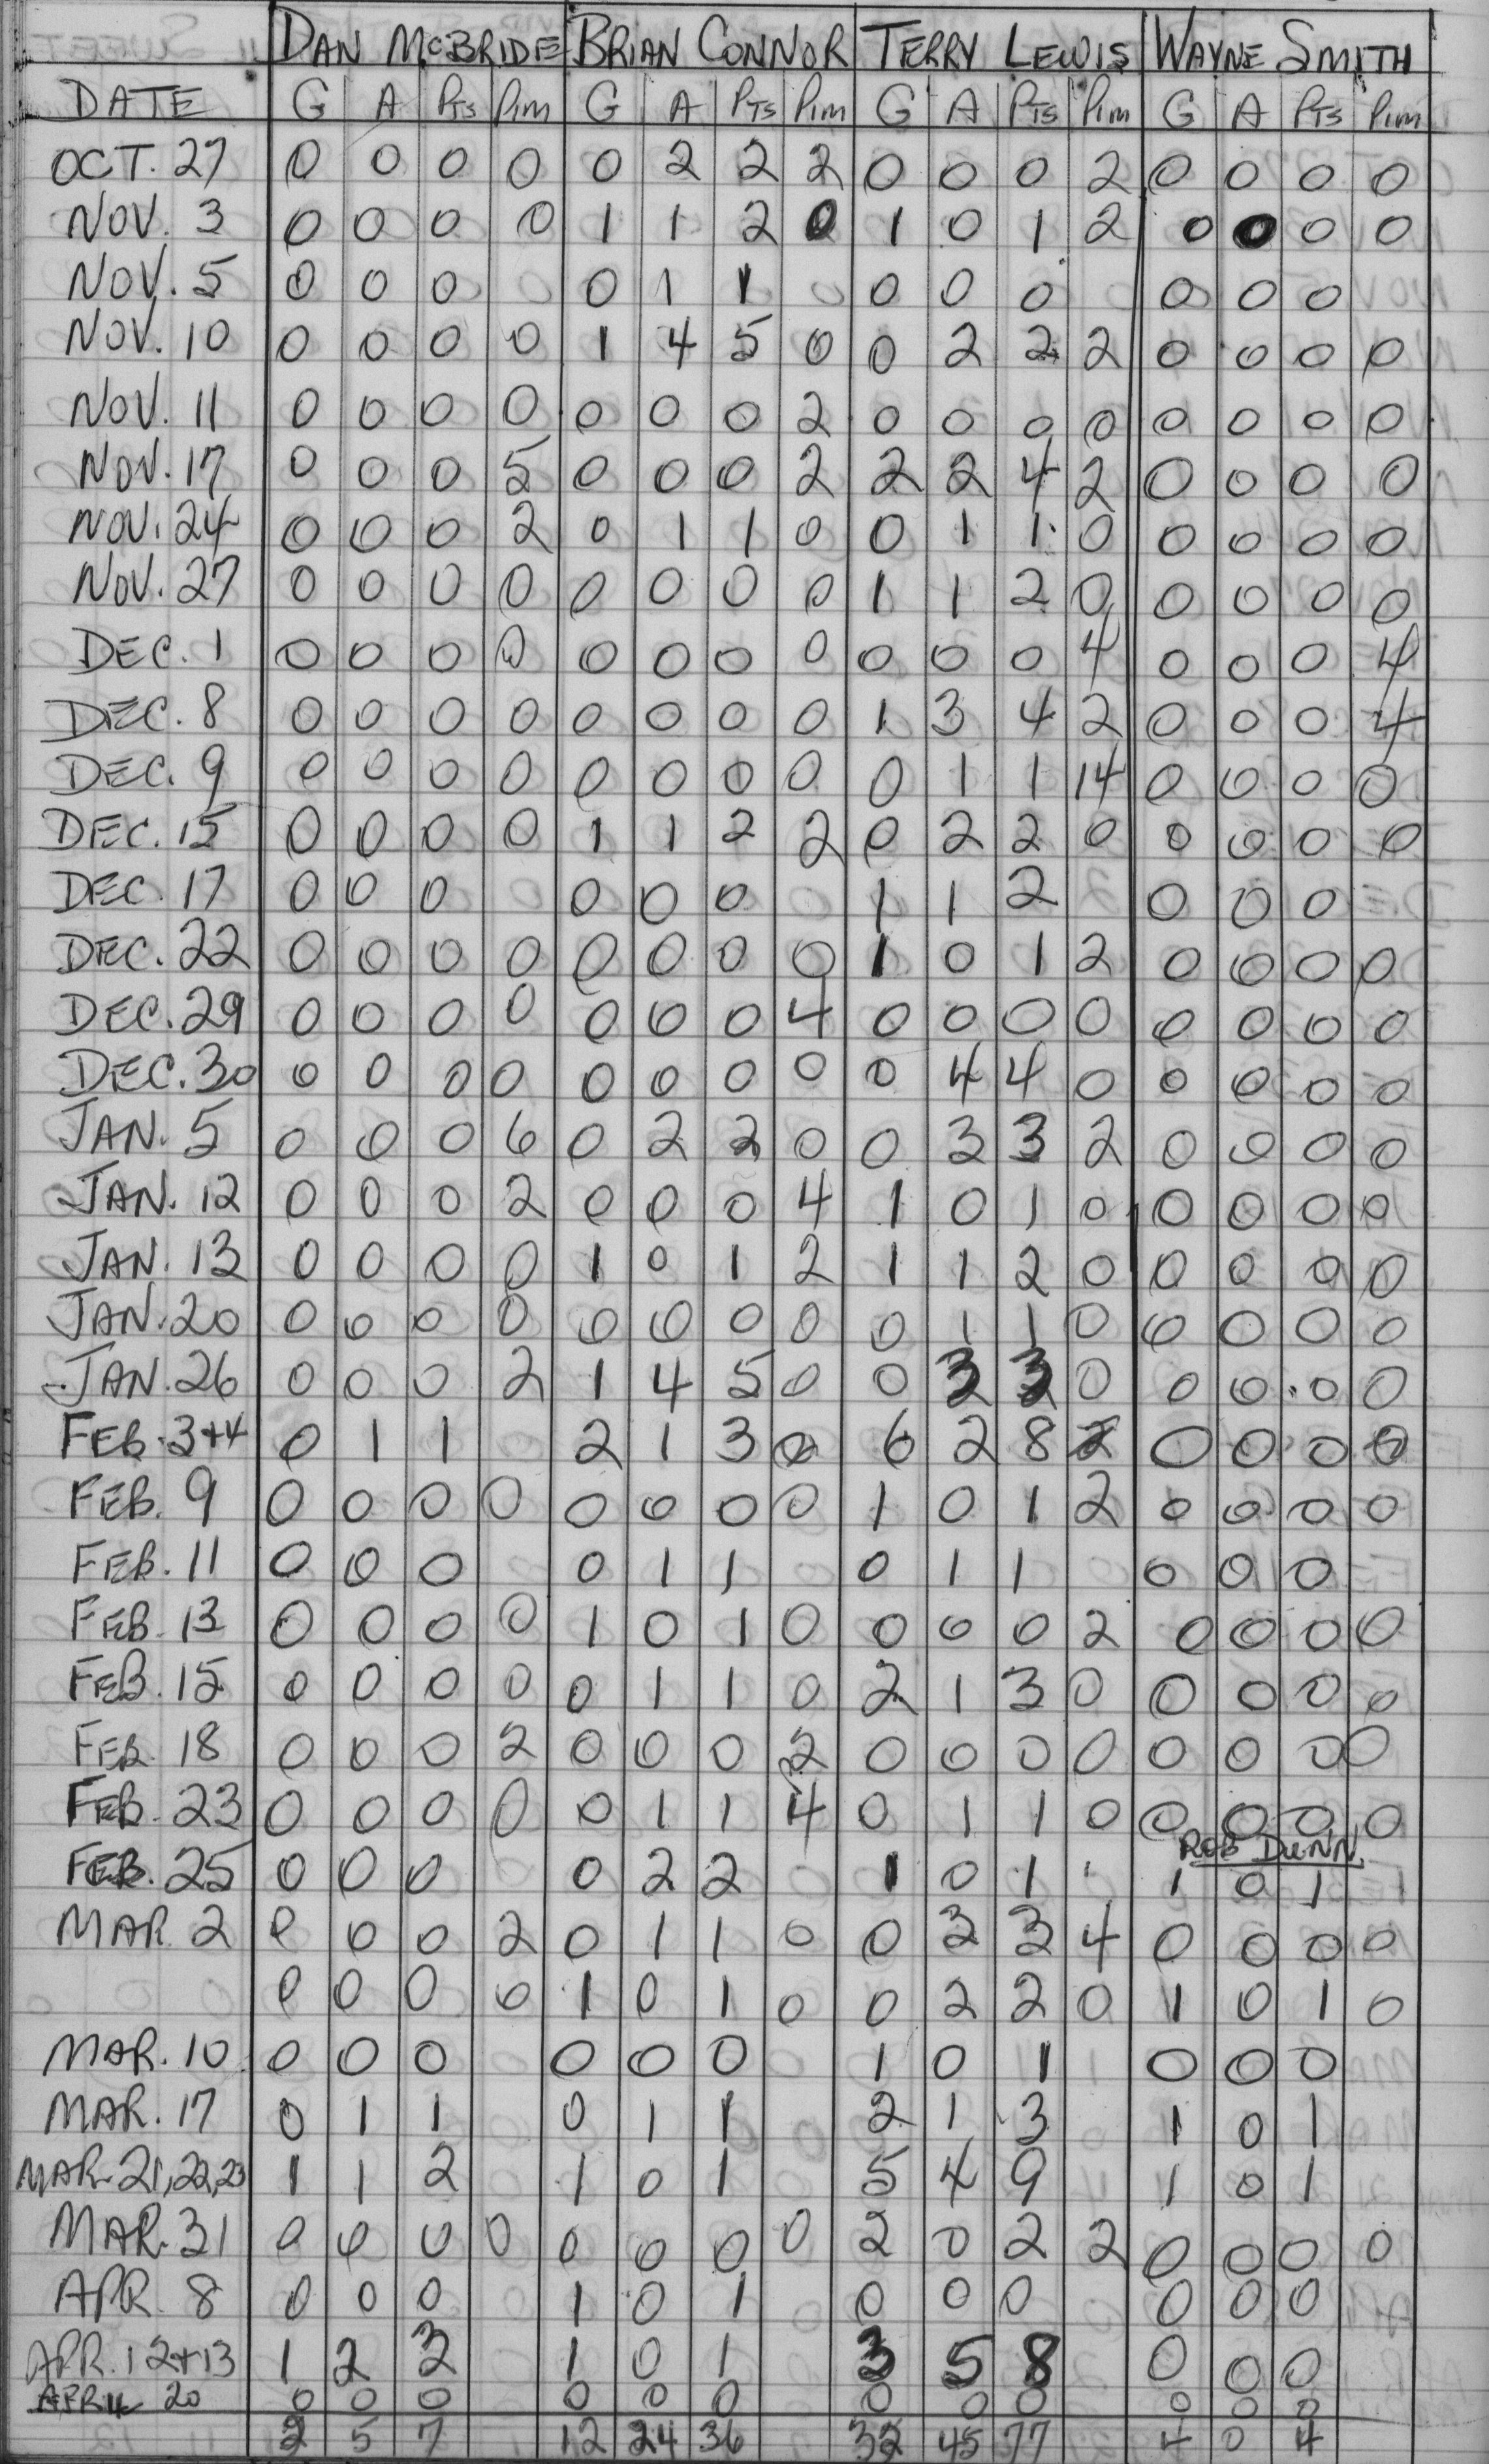 DAN McBRIDE BRIAN CONNOR TERRY LEWIS WAYNE SMITH
DATE G A PTS PIM G A PTS PIM G A PTS PIM G A PTS PIM
OCT. 27 0 0 0 0 0 2 2 2 0 0 0 2 0 0 0 0
NOV. 3 0 0 0 0 1 1 2 0 1 0 1 2 0 0 0 0
NOV. 5 0 0 0 0 1 1 0 0 0 0 0 0
NOV. 10 0 0 0 0 1 4 5 0 0 2 2 2 0 0 0 0
NOV. 11 0 0 0 0 0 0 0 2 0 0 0 0 0 0 0 0
NOV. 17 0 0 0 5 0 0 0 2 2 2 4 2 0 0 0 0
NOV. 24 0 0 0 2 0 1 1 0 0 1 1 0 0 0 0 0
NOV. 27 0 0 0 0 0 0 0 0 1 1 2 0 0 0 0 0
DEC. 1 0 0 0 0 0 0 0 0 0 0 0 4 0 0 0 4
DEC. 8 0 0 0 0 0 0 0 0 1 3 4 2 0 0 0 4
DEC. 9 0 0 0 0 0 0 0 0 0 1 1 14 0 0 0 0
DEC. 15 0 0 0 0 1 1 2 2 0 2 2 0 0 0 0 0
DEC. 17 0 0 0 0 0 0 1 1 2 0 0 0
DEC. 22 0 0 0 0 0 0 0 0 1 0 1 2 0 0 0 0
DEC. 29 0 0 0 0 0 0 0 4 0 0 0 0 0 0 0 0
DEC. 30 0 0 0 0 0 0 0 0 0 4 4 0 0 0 0 0
JAN. 5 0 0 0 6 0 2 2 0 0 3 3 2 0 0 0 0
JAN. 12 0 0 0 2 0 0 0 4 1 0 1 0 0 0 0 0
JAN. 13 0 0 0 0 1 0 1 2 1 1 2 0 0 0 0 0
JAN. 20 0 0 0 0 0 0 0 0 0 1 1 0 0 0 0 0
JAN. 26 0 0 0 2 1 4 5 0 0 3 3 0 0 0 0 0
FEB. 3+4 0 1 1 2 1 3 0 6 2 8 2 0 0 0 0
FEB. 9 0 0 0 0 0 0 0 0 1 0 1 2 0 0 0 0
FEB. 11 0 0 0 0 1 1 0 1 1 0 0 0
FEB. 13 0 0 0 0 1 0 1 0 0 0 0 2 0 0 0 0
FEB. 15 0 0 0 0 0 1 1 0 2 1 3 0 0 0 0 0
FEB. 18 0 0 0 2 0 0 0 2 0 0 0 0 0 0 0 0
FEB. 23 0 0 0 0 0 1 1 4 0 1 1 0 0 0 0 0
ROB DUNN
FEB. 25 0 0 0 0 2 2 1 0 1 1 0 1
MAR. 2 0 0 0 2 0 1 1 0 0 3 3 4 0 0 0 0
0 0 0 0 1 0 1 0 0 2 2 0 1 0 1 0
MAR. 10 0 0 0 0 0 0 1 0 1 0 0 0
MAR. 17 0 1 1 0 1 1 2 1 3 1 0 1
MAR. 21,22,23 1 1 2 1 0 1 5 4 9 1 0 1
MAR. 31 0 0 0 0 0 0 0 0 2 0 2 2 0 0 0 0
APR. 8 0 0 0 1 0 1 0 0 0 0 0 0
APR. 12+13 1 2 3 1 0 1 3 5 8 0 0 0
APRIL 20 0 0 0 0 0 0 0 0 0 0 0 0
2 5 7 12 24 36 32 45 77 4 0 4